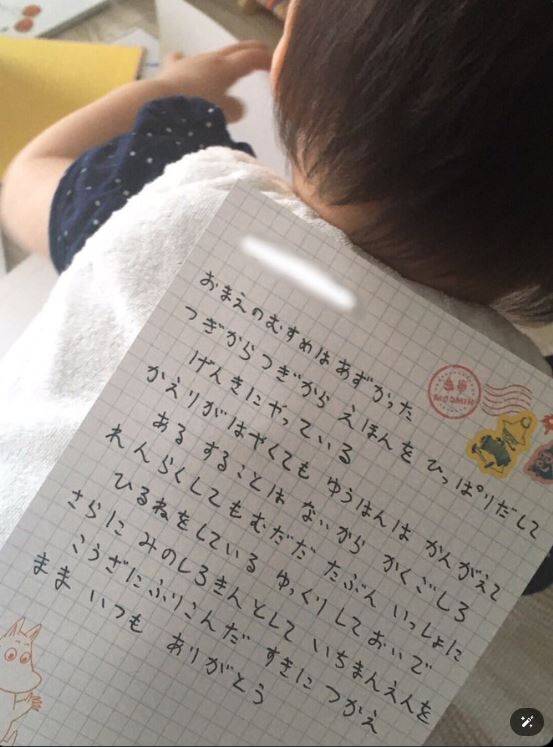 おまえのむすめはあずかった
つぎからつぎから えほんを ひっぱりだして
げんきにやっている
かえりがはやくても ゆうはんは かんがえて
ある することは ないから かくごしろ
れんらくしてもむだだ たぶん いっしょに
ひるねをしている ゆっくりしておいで
さらに みのしろきんとして いちまんえんを
こうざにふりこんだ すきに つかえ
まま いつも ありがとう
MOOMIN